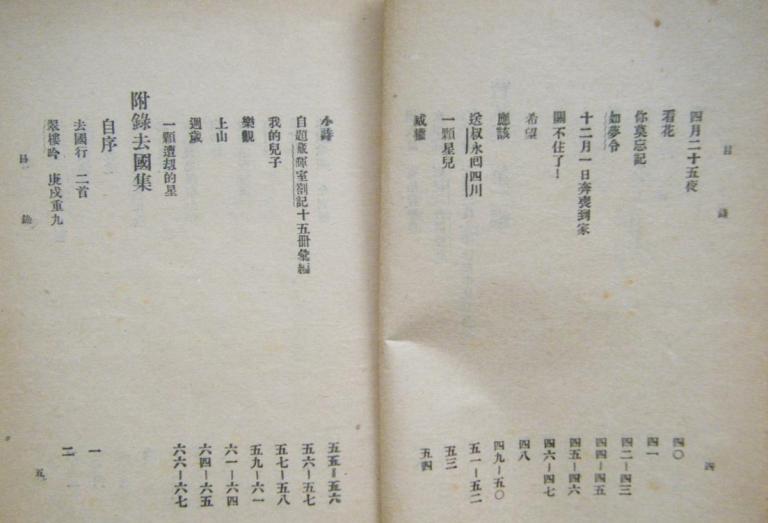 目錄
四月二十五夜 四〇
看花 四一
你莫忘記 四二—四三
如夢令 四四—四五
十二月一日奔喪到家 四五—四六
關不住了! 四六—四七
希望 四八
應該 四九—五〇
送叔永回四川 五一—五二
一顆星兒 五三
威權 五四
四
小詩 五五—五六
自題藏暉室劄記十五冊彙編 五六—五七
我的兒子 五七—五八
樂觀 五九—六一
上山 六一—六四
週歲 六四—六五
一顆遭刼的星 六六—六七
附錄去國集
自序
去國行 二首 一
翠樓吟 庚戌重九 二
目錄
五